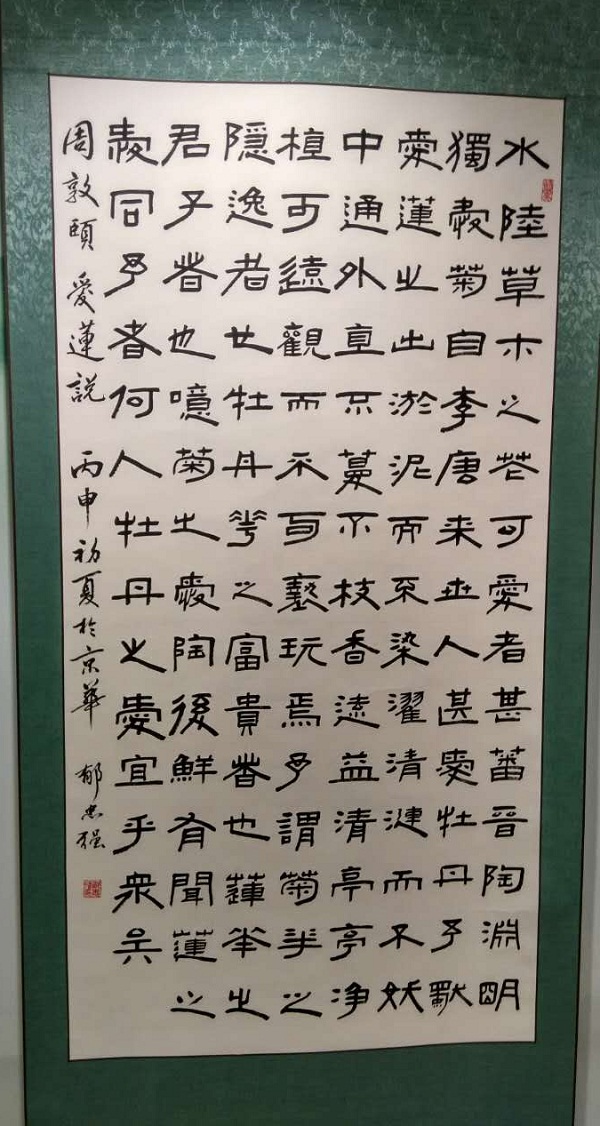 水陸草木之花可愛者甚蕃晉陶淵明
獨愛菊自李唐来世人甚愛牡丹予獨
愛蓮之出淤泥而不染濯清漣而不妖
中通外直不蔓不枝香遠益清亭亭净
植可遠觀而不可褻玩焉予謂菊華之
隱逸者也牡丹華之富貴者也蓮華之
君子者也噫菊之愛陶後鮮有聞蓮之
愛同予者何人牡丹之愛宜乎衆矣
周敦頤 愛蓮説 丙申初夏於京華 郁忠强